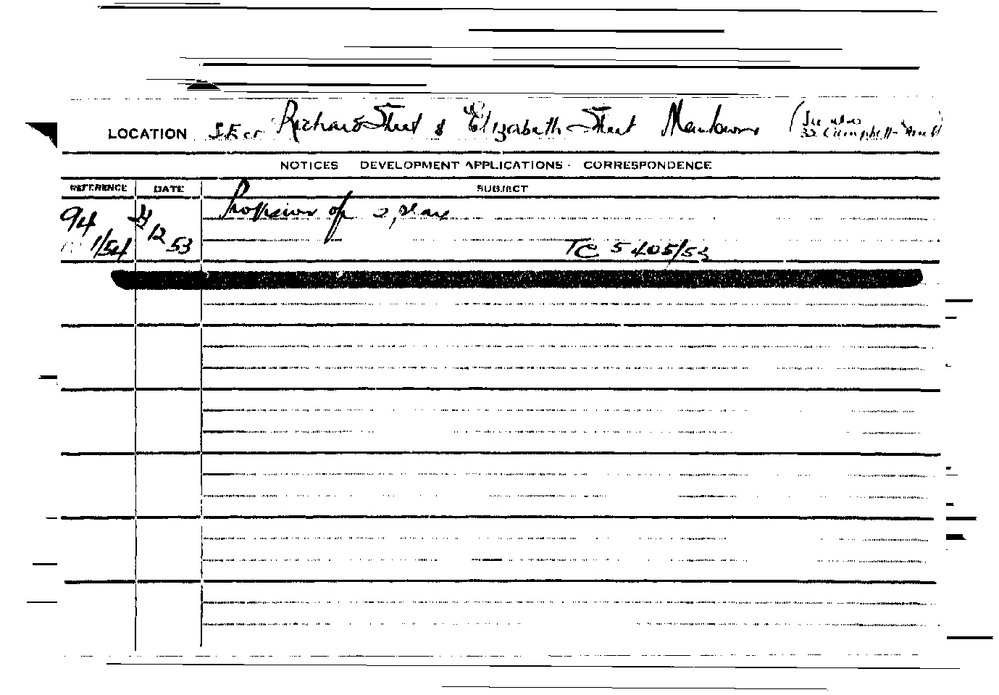 LOCATION S.E. cr Richard Street & Elizabeth Street (See also 32 Campbell
NOTICES DEVELOPMENT APPLICATIONS · CORRESPONDENCE
REFERENCE DATE SUBJECT
94 Provision of 2
1/54 12 53 TC 5405/53